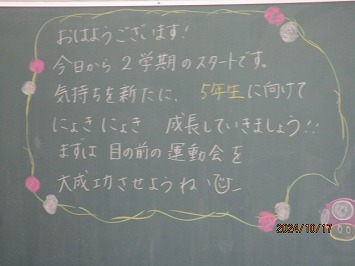 おはようございます!
今日から2学期のスタートです。
気持ちを新たに、5年生に向けて
にょきにょき 成長していきましょう!!
まずは目の前の運動会を
大成功させようね
2024/10/17